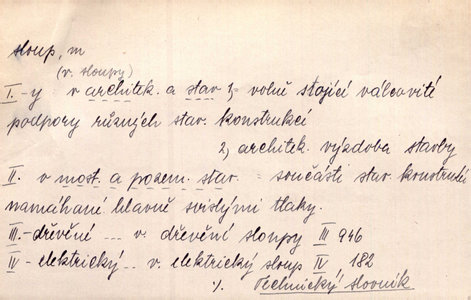 sloup, m
(v. sloupy)
I. -y v architek. a stav 1) volně stojící válcovité
podpory různých stav. konstrukcí
2) architek. výzdoba stavby
II. v most. a pozem. stav. = součásti stav. konstrukcí
namáhané hlavně svislými tlaky.
III. - dřevěné ... v. dřevění sloupy III 946
IV - elektrický .. v. elektrický sloup IV 182
Technický slovník